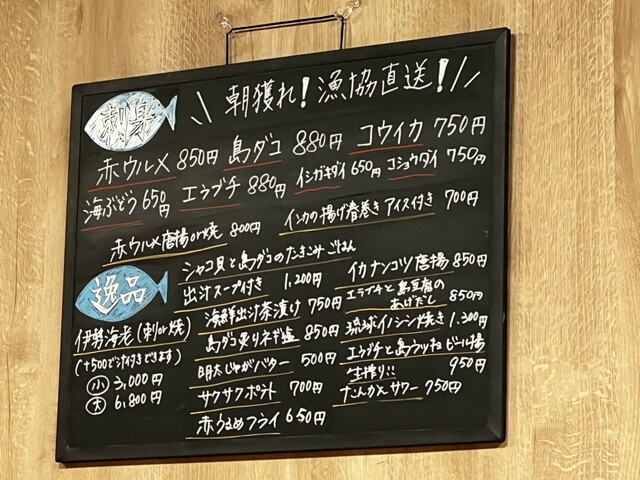 刺身
朝獲れ!漁協直送!
赤ウルメ 850円 島ダコ 880円 コウイカ 750円
海ぶどう 650円 エラブチ 880円 イシガキダイ 650円 コショウダイ 750円
赤ウルメ唐揚or焼 800円 インカの揚げ春巻き アイス付き 700円
逸品
シャコ貝と島ダコのたきこみごはん
出汁スープ付き 1,200円
海鮮出汁茶漬け 750円
島ダコ炙りネギ塩 850円
明太じゃがバター 500円
サクサクポテト 700円
赤うるめフライ 650円
イカナンコツ唐揚 850円
エラブチと島豆腐の
あげだし 850円
琉球イノシシ焼き 1,300円
エラブチと島ラッキョ ビール揚
950円
生搾り!!
たんかんサワー 750円
伊勢海老(刺or焼)
(+500で汁付きできます)
小 3,000円
大 6,800円